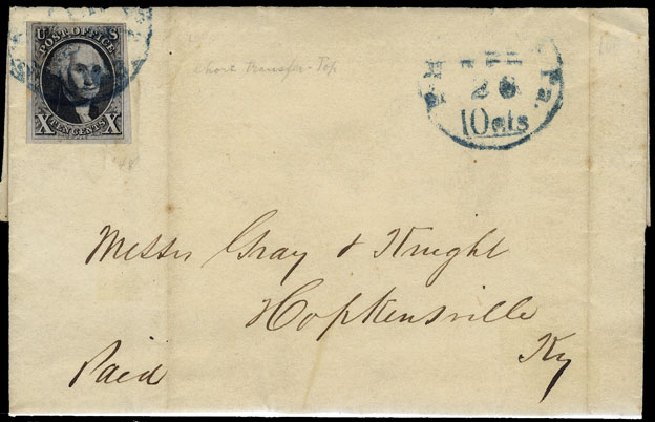 U S
POST OFFICE
X TEN CENTS X
Short Transfer - Top
PH Pa.
26
10cts
Messrs Gray & Knight
Hopkensville
Ky
Paid